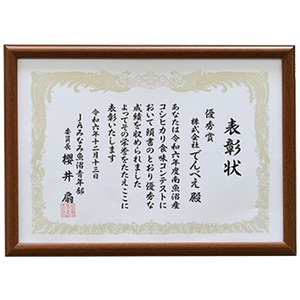 表彰状
優秀賞
株式会社でんべえ 殿
あなたは令和六年度南魚沼産
コシヒカリ食味コンテストに
おいて頭書のとおり優秀な
成績を収められました
よってその栄誉をたたえここに
表彰いたします
令和六年十二月十三日
JAみなみ魚沼青年部
委員長 櫻井 扇